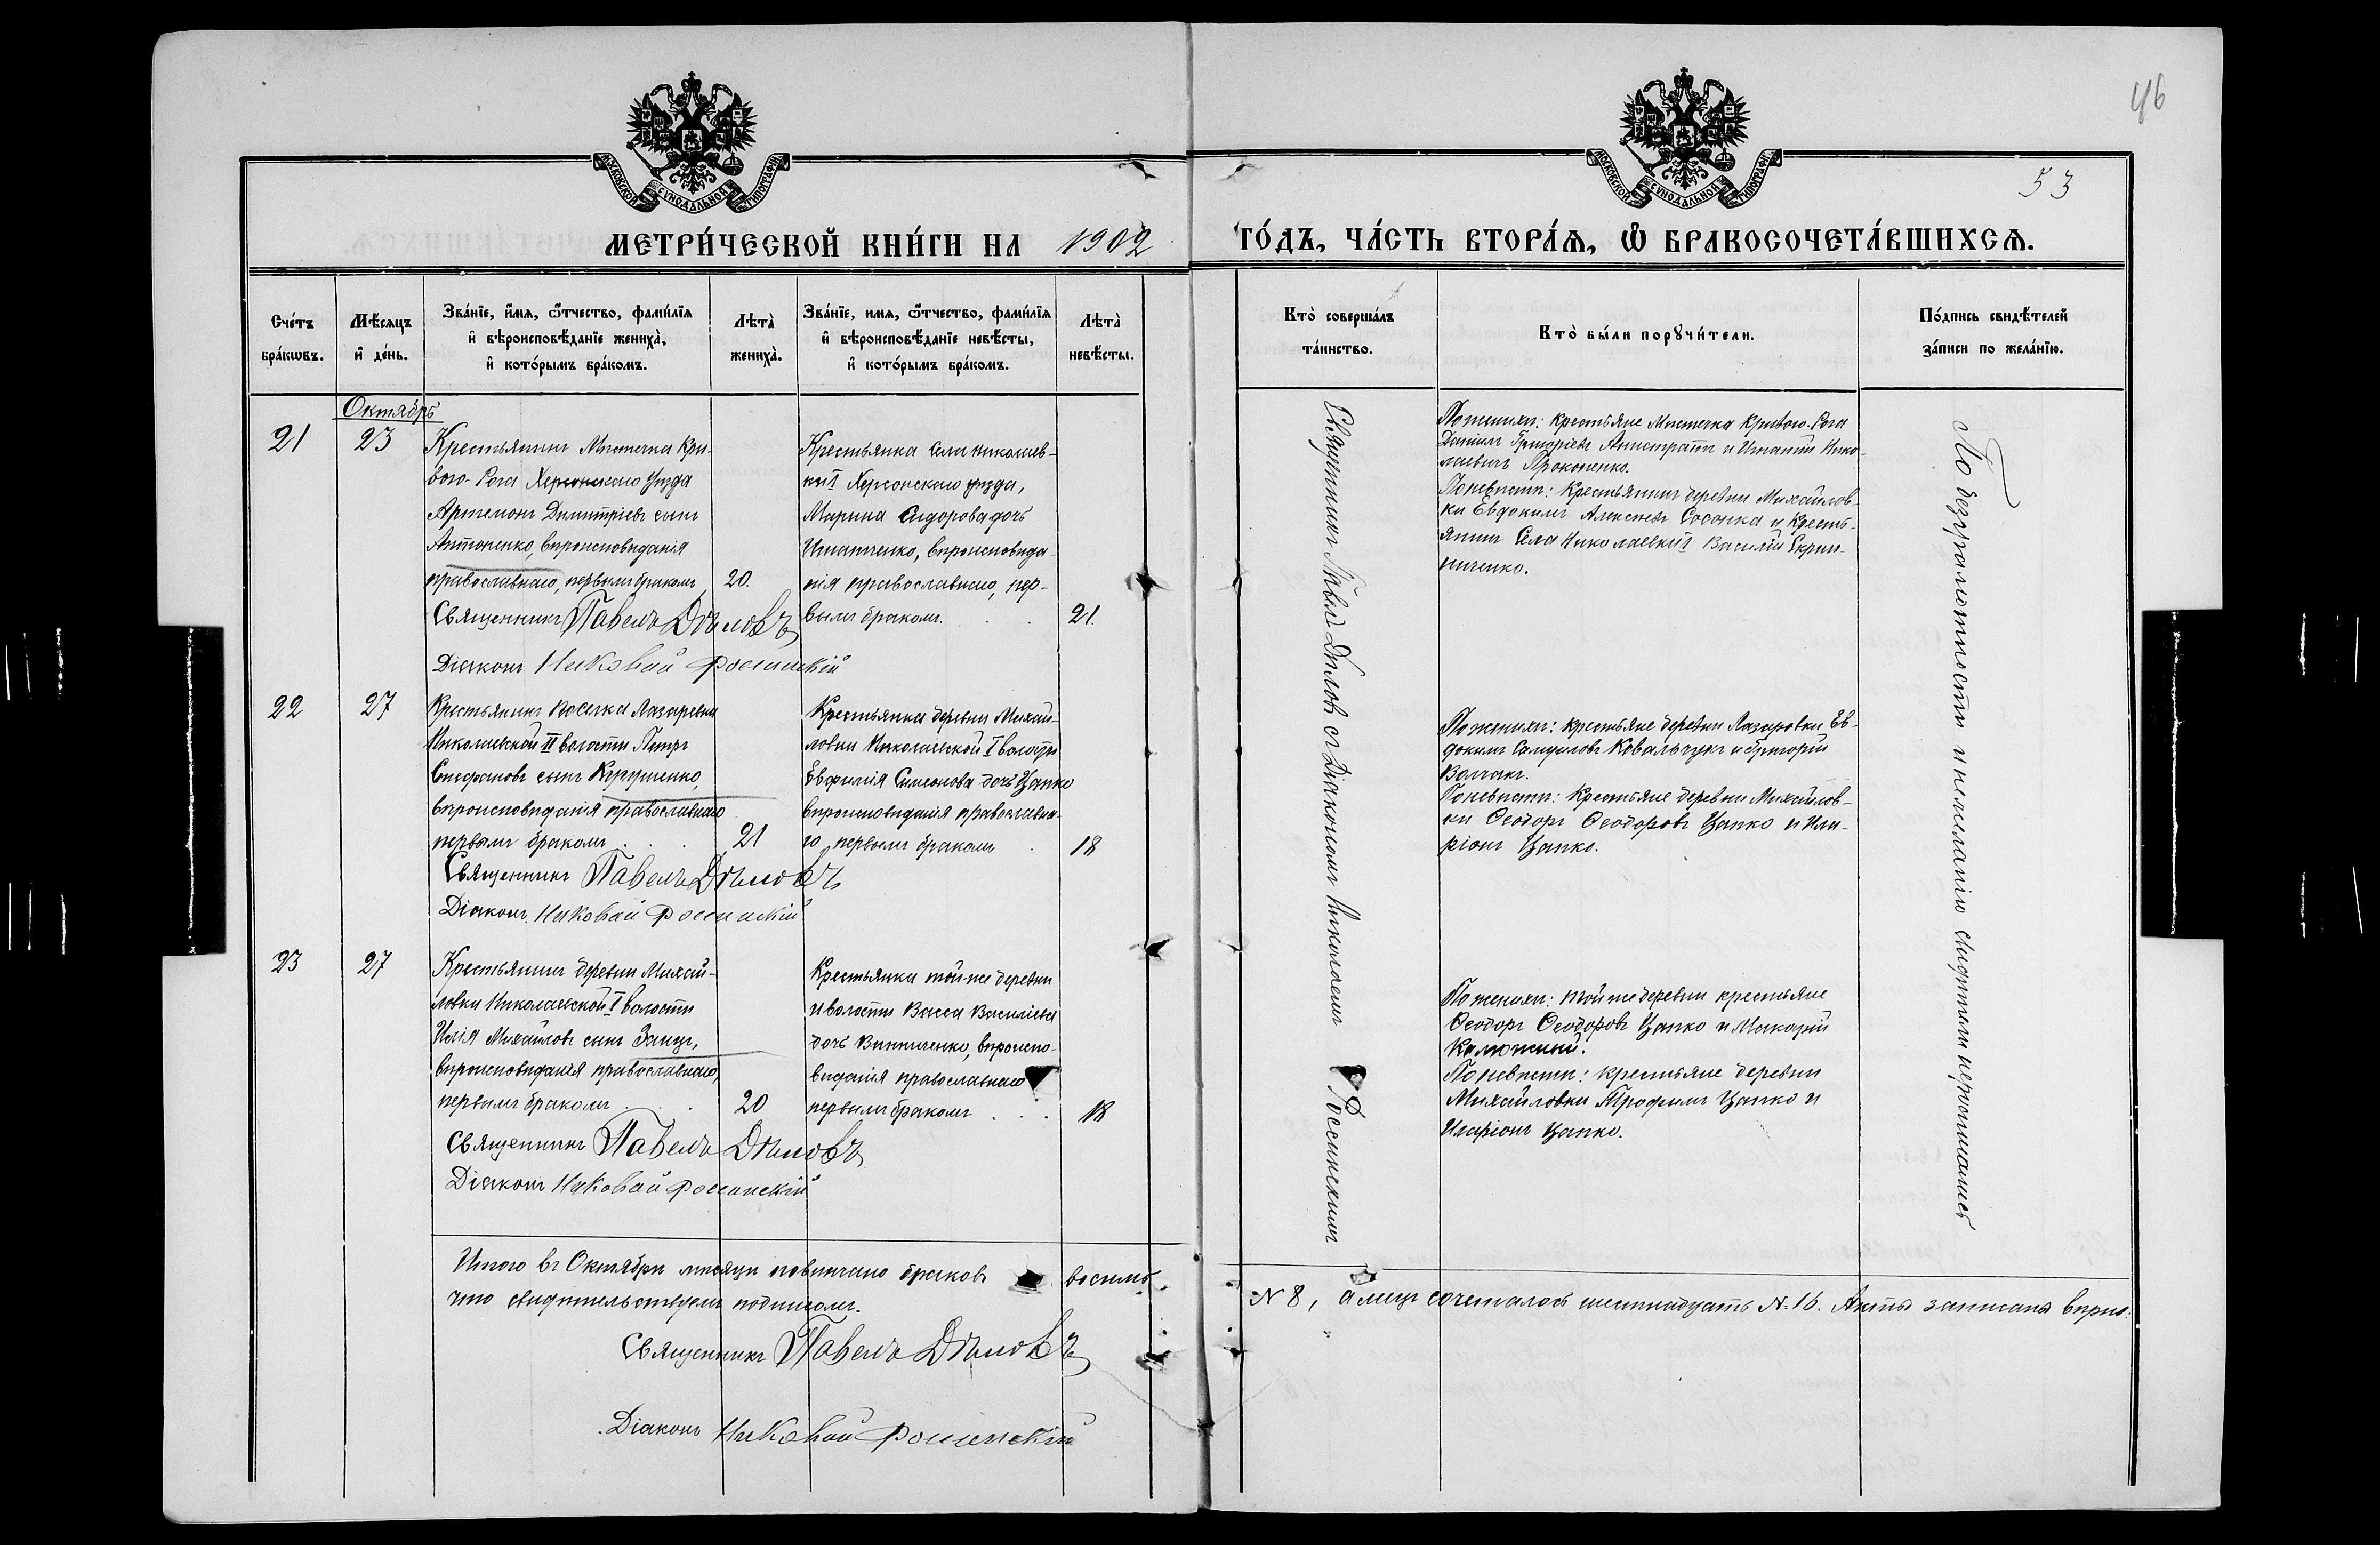 46
53
МОСКОВСКОЙ СУНОДАЛЬНОЙ ТИПОГРАФІИ
МОСКОВСКОЙ СУНОДАЛЬНОЙ ТИПОГРАФІИ
МЕТРИ́ЧЕСКОЙ КНИ́ГИ НА 1902 ГО́ДЪ, ЧА́СТЬ ВТОРА́Ѧ, Ѽ БРАКОСОЧЕТА́ВШИХСѦ.
Сче́тъ бра́кѡвъ.
Мѣ́сѧцъ и҆ де́нь.
Зва́нїе, и҆́мѧ, ѻ҆́тчество, фами́лїѧ
и҆ вѣроисповѣ́данїе жениха̀,
и҆ кото́рымъ бра́комъ.
Лѣта̀ жениха̀.
Зва́нїе, имѧ, ѻ҆́тчество, фами́лїѧ
и҆ вѣроисповѣ́данїе невѣ́сты,
и҆ кото́рымъ бра́комъ.
Лѣта̀ невѣ́сты.
Кто̀ соверша́лъ та́инство.
Кто̀ бы́ли порꙋчи́тели.
По́дпись свидѣ́телей за́писи по жела́нїю.
Октябрь
21
23
Крестьянинъ Мѣстечка Кри-
вого-Рога Херсонскаго уѣзда
Артемонъ Димитріевъ сынъ
Антоненко, вѣроисповѣданія
православнаго, первымъ бракомъ
20.
Священникъ Павелъ Дѣловъ
Діаконъ Николай Россинскій
Крестьянка села Николаев-
ки I Херсонскаго уѣзда,
Марина Сидорова дочь
Игнатченко, вѣроисповѣда-
нія православнаго, пер-
вымъ бракомъ.
21.
Поженихѣ: крестьяне Мѣстечка Кривого-Рога
Даніилъ Григоріевъ Апистратъ и Игнатій Нико-
лаевичъ Прокопенко.
Поневѣстѣ: Крестьянинъ деревни Михайлов-
ки Евдокимъ Алексѣевъ и Кресть-
янинъ Села Николаевки I Василій Скрип-
ниченко.
22
27
Крестьянинъ поселка Лазаревки
Николаевской II волости Петръ
Стефановъ сынъ Курушенко,
вѣроисповѣданія православнаго
первымъ бракомъ
21
Священникъ Павелъ Дѣловъ
Діаконъ Николай Россинскій
Крестьянка деревни Михай-
ловки Николаевской I волости
Евфимія Симеонова дочь Цапко
вѣроисповѣданія православна-
го, первымъ бракомъ
18
Поженихѣ: крестьяне деревни Лазаровки Ев-
докимъ Самуиловъ Ковальчукъ и Григорій
Волчакъ.
Поневѣстѣ: Крестьяне деревни Михайлов-
ки Ѳеодоръ Ѳеодоровъ Цапко и Ила-
ріонъ Цапко.
23
27
Крестьянинъ деревни Михай-
ловки Николаевской I волости
Илія Михайловъ сынъ Заецъ,
вѣроисповѣданія православнаго,
первымъ бракомъ
20
Священникъ Павелъ Дѣловъ
Діаконъ Николай Россинскій
Крестьянка той же деревни
и волости Васса Василіева
дочь Винниченко, вѣроиспо-
вѣданія православнаго
первымъ бракомъ
18
Поженихѣ: той же деревни крестьяне
Ѳеодоръ Ѳеодоровъ Цапко и Макарій
Калюжный.
Поневѣстѣ: крестьяне деревни
Михайловки Трофимъ Цапко и
Иларіонъ Цапко.
Священникъ Павелъ Дѣловъ съ Діакономъ Николаемъ Россинскимъ
По безграмотности и нежеланію свидѣтели нерасписались
Итого въ Октябрѣ мѣсяцѣ повѣнчано браковъ восемь № 8, а лицъ сочеталось шестнадцать № 16. Акты записаны вѣрно.
что свидѣтельствуемъ подписомъ.
Священникъ Павелъ Дѣловъ
Діаконъ Николай Россинскій